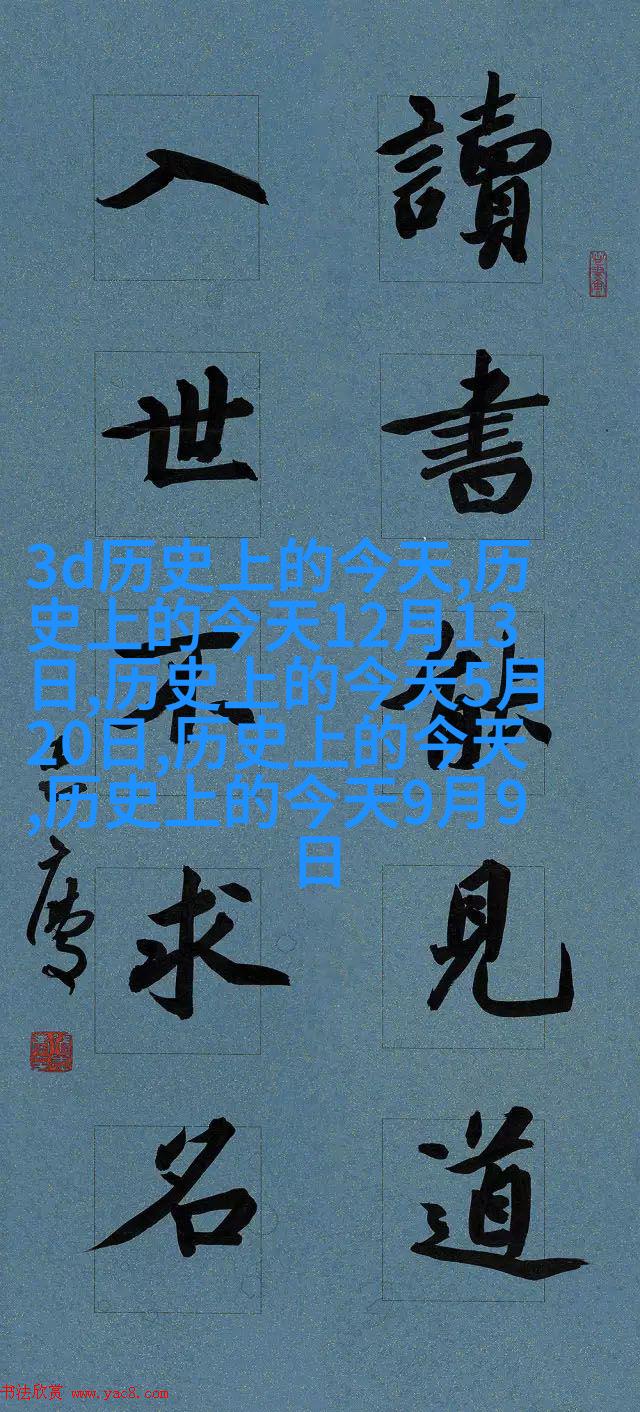 讀書能見道
入世不求名
3d历史上的今天,历
史上的今天12月13
日,历史上的今天5月
20日,历史上的今天
,历史上的今天9月9
日
书法欣赏 www.yac8.com